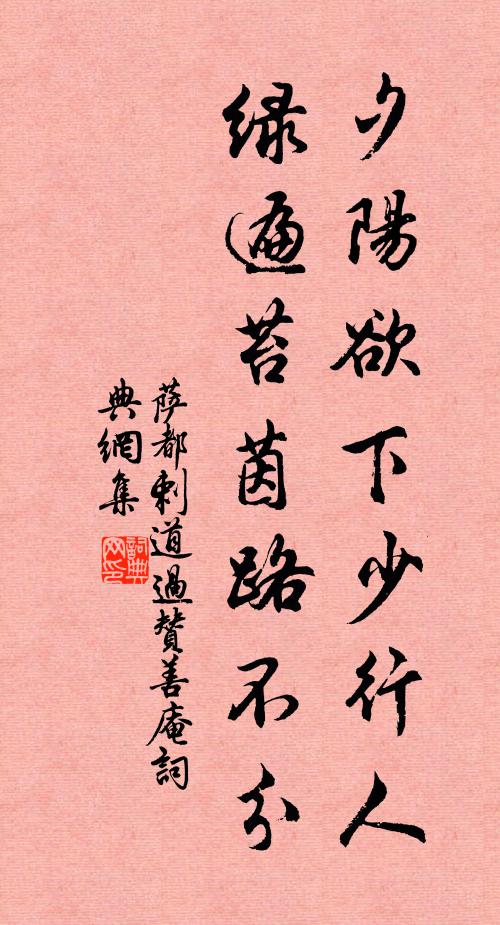 夕陽欲下少行人
緑遍苔茵路不分
薩都剌道過贊善庵詞
典網集
詞典网印